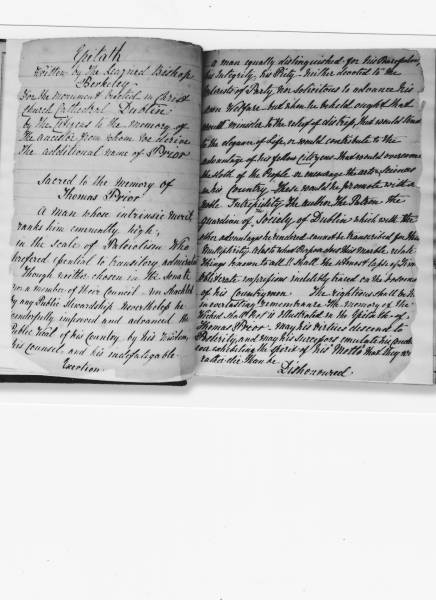 Epitath
Written by The Learned Bishop
Berkeley
For the monument Erected in Christ
Church Cathedral Dublin
by the to the memory of
the ancestor from whom we derive
The additional name of Prior
Sacred to the memory of
Thomas Prior
A man whose intrinsic merit
ranks him eminently high,
in the scale of Patriotism Who
prefered Essential to transitory admiration
Though neither chosen in the Senate
nor a member of their Council. nor Shackled
by any Public Stewardship Nevertheless he
wonderfully improved and advanced the
Public Weal of his Country by his Wisdom,
his counsel, and his indefatigable
Exertion
A man equally distinguished for his
his Integrity, his Piety. Neither devoted to the
Interests of Party, nor Solicitous to advance his
own Welfare but when he beheld ought that
would minister to the relief of distress, that would tend
to the elegance of Life, or would contribute to the
advantage of his fellow Citizens, that would overcome
the sloth of the People or encourage the arts & Sciences
in his Country. These would he promote with a
noble Intrepidity. The Author, The Patron The
guardian of The Society of Dublin which with the
other advantages he rendered cannot be transcribed for their
Multiplicity. Alas to what purpose does this Marble relate
Things known to all!! Shall the utmost lapse of Time
Obliterate impressions indelibly traced on the bosoms
of his Countrymen The righteous shall be in
everlasting remembrance The memory of the
Wicked shall Rot is Illustrated in the Epitath of
Thomas Prior. May his virtues descend to
Posterity, and may his Successors emulate his
ever exhibiting the Spirit of his Motto that they
rather Die than be
Dishonoured.